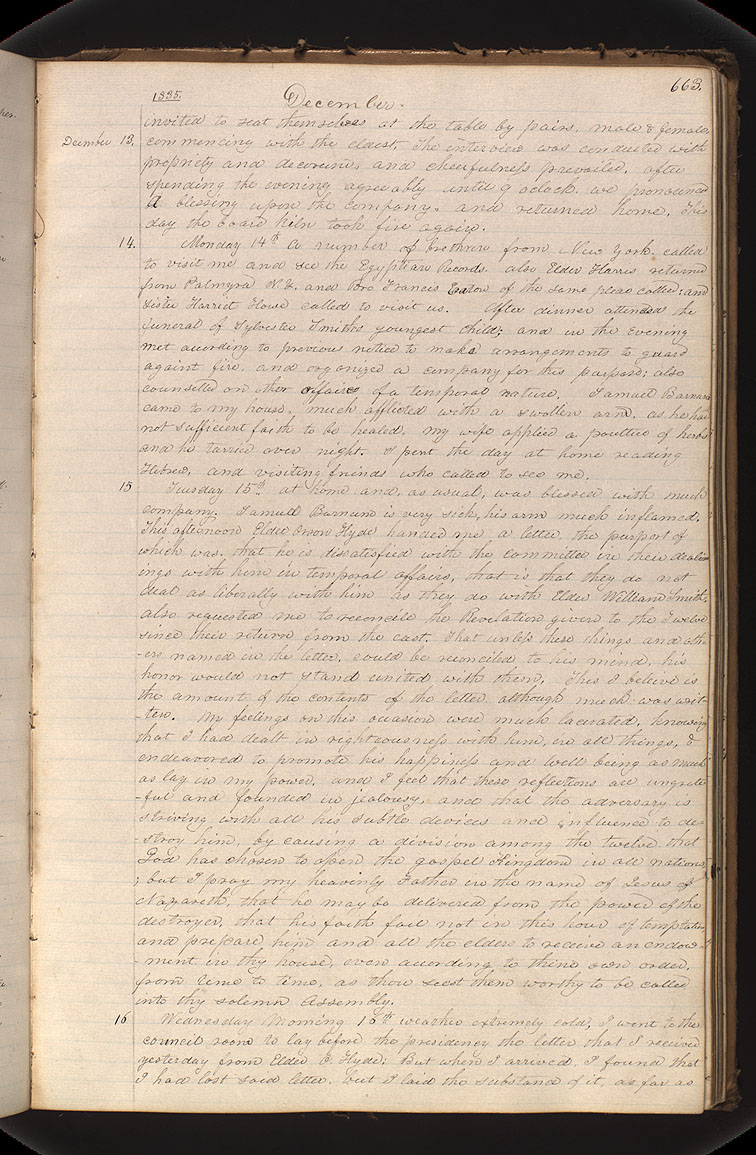 1835.
December.
663.
invited to seat themselves at the table by pairs, male & female,
December 13. commencing with the eldest. The interview was conducted with
propriety and decorum, and cheerfulness prevailed. After
spending the evening agreeably until 9 oclock, we pronounced
a blessing upon the company, and returned home. This
day the board kiln took fire again.
14. Monday 14th a number of brethren from New York called
to visit me and see the Egyptian Records. also Elder Harris returned
from Palmyra N.Y. and bro Francis Eaton of the same place called; and
Sister Harriet Howe called to visit us. After dinner attended the
funeral of Sylvester Smith's youngest Child; and in the evening
met according to previous notice to make arrangements to guard
against fire, and organized a company for this purpose; also
counselled on other affairs of a temporal nature. Samuel Barnum
came to my house, much afflicted with a swollen arm, as he had
not sufficient faith to be healed, my wife applied a poultice of herbs
and he tarried over night. I spent the day at home reading
Hebrew, and visiting friends who called to see me.
15 Tuesday 15th at home and, as usual, was blessed with much
company. Samuel Barnum is very sick, his arm much inflamed.
This afternoon Elder Orson Hyde handed me a letter, the purport of
which was, that he is dissatisfied with the committee in their deal-
ings with him in temporal affairs, that is that they do not
deal as liberally with him as they do with Elder William Smith,
also requested me to reconcile the Revelation given to the Twelve
since their return from the east, That unless these things and oth-
-ers named in the letter, could be reconciled to his mind, his
honor would not stand united with them, This I believe is
the amount of the contents of the letter although much was writ-
-ten. My feelings on this occasion were much lacerated, knowing
that I had dealt in righteousness with him, in all things, &
endeavored to promote his happiness and well being as much
as lay in my power, and I feel that these reflections are ungrate
-ful and founded in jealousy and that the adversary is
striving with all his subtle devices and influence to de-
-stroy him, by causing a division among the twelve that
God has chosen to open the gospel Kingdom in all nations
; but I pray my heavenly Father in the name of Jesus of
Nazareth, that he may be delivered from the power of the
destroyer, that his faith fail not in this hour of temptation,
and prepare him and all the elders to receive an endow-
-ment, in thy house, even according to thine own order,
from time to time, as thou seest them worthy to be called
into thy solemn Assembly.
16 Wednesday Morning 16th weather extremely cold, I went to the
council room to lay before the presidency the letter that I received
yesterday from Elder O. Hyde; But when I arrived, I found that
I had lost said letter, but I laid the substance of it, as far as